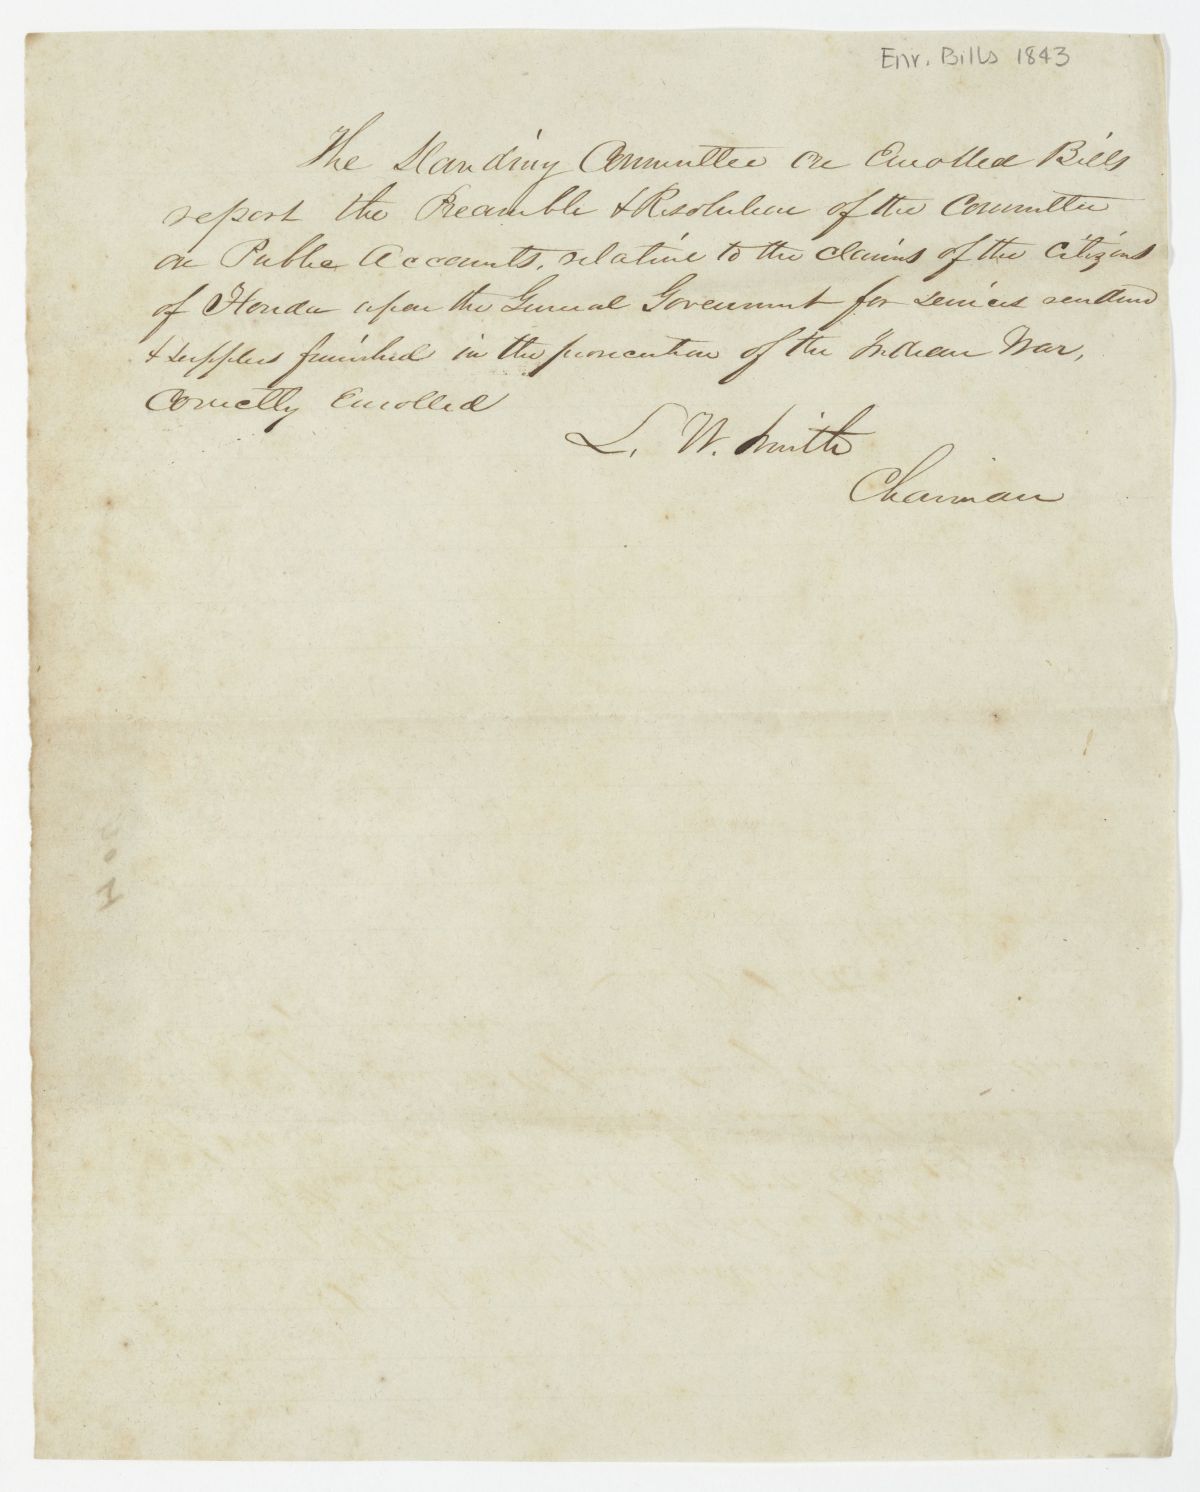 Enr. Bills 1843
The Standing Committee on Enrolled Bills
report the Preamble & Resolution of the Committee
on Public Accounts, relative to the claims of the citizens
of Florida upon the General Government for Services rendered
& supplies furnished in the prosecution of the Indian War,
Correctly Enrolled
L. W. Smith
Chairman